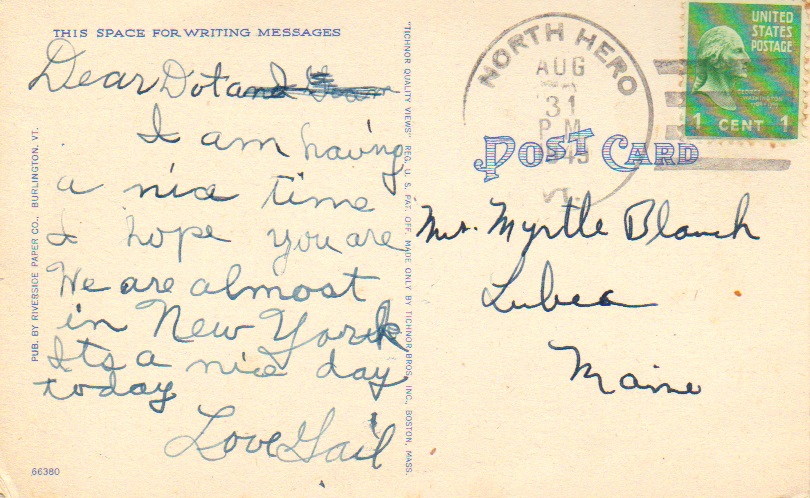 THIS SPACE FOR WRITING MESSAGES
Dear Dot and
I am having
a nice time
I hope you are
We are almost
in New York
Its a nice day
today
Love Gail
66380
PUB. BY RIVERSIDE PAPER CO., BURLINGTON, VT.
"TICHNOR QUALITY VIEWS" REG. U. S. PAT. OFF. MADE ONLY BY TICHNOR BROS., INC., BOSTON, MASS.
NORTH HERO
AUG
31
P.M.
1949
VT.
UNITED
STATES
POSTAGE
GEORGE
WASHINGTON
1 CENT 1
POST CARD
Mrs. Myrtle Blanch
Lubec
Maine